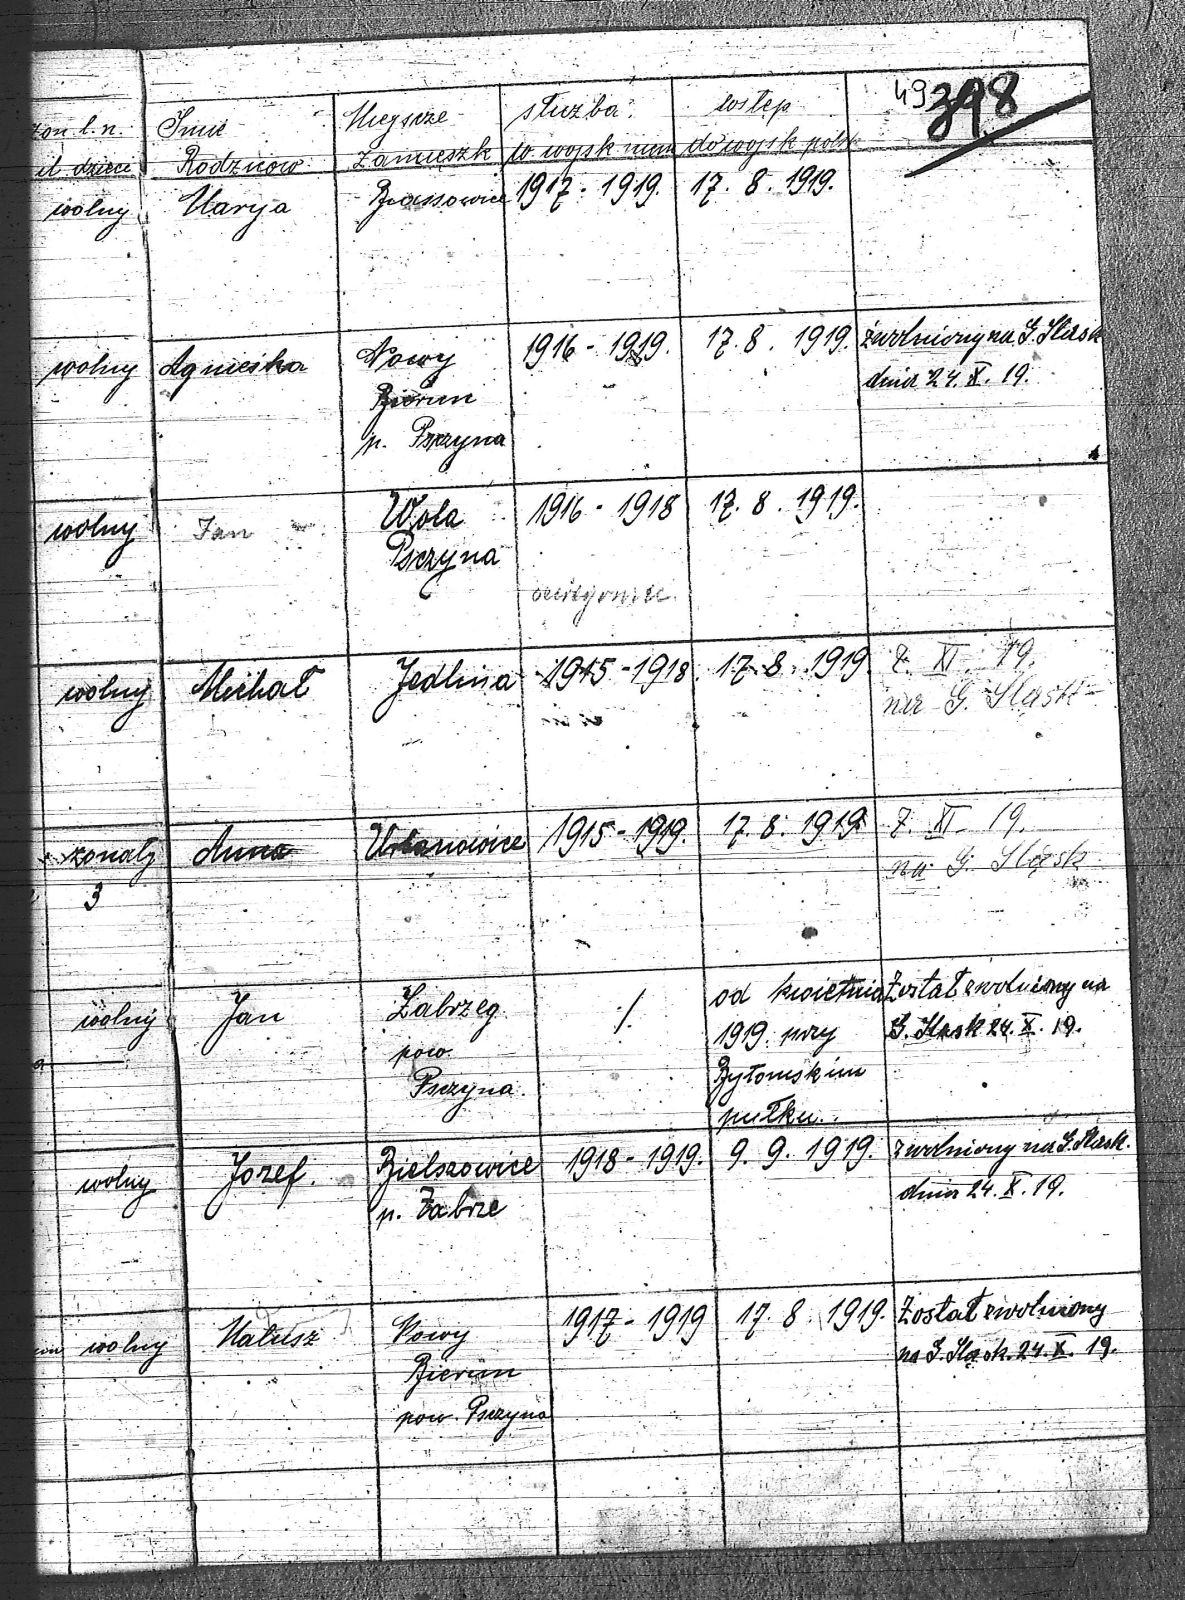 49 398
żon l. n. Imię Miejsce służba wstęp
il dzieci Rodziców zamieszk w wojsk niem do wojsk polsk
wolny Marya Brzassowice 1917 - 1919. 17. 8. 1919.
wolny Agnieska Nowy 1916 - 1919. 17. 8. 1919. zwolniony na G. Śląsk
Bierun dnia 24. X. 19.
p. Pszczyna
wolny Jan Wola 1916 - 1918 17. 8. 1919.
Psczyna
wolny Michał Jedlina 1915 - 1918. 17. 8. 1919 7. XI. 19.
na G. Śląsk
żonaty Anna Urbanowice 1915 - 1919. 17. 8. 1919 7. XI. 19.
3 na G. Śląsk
wolny Jan Zabrzeg ./. od kwietnia Został zwolniony na
pow. 1919. przy G. Śląsk 24. X. 19.
Psczyna. Bytomskim
pułku.
wolny Józef. Bielszowice 1918 - 1919. 9. 9. 1919. zwolniony na G. Śląsk.
p. Zabrze dnia 24. X. 19.
wolny Matusz Nowy 1917 - 1919 17. 8. 1919. Został zwolniony
Bierun na G. Śląsk. 24. X. 19.
pow. Psczyna